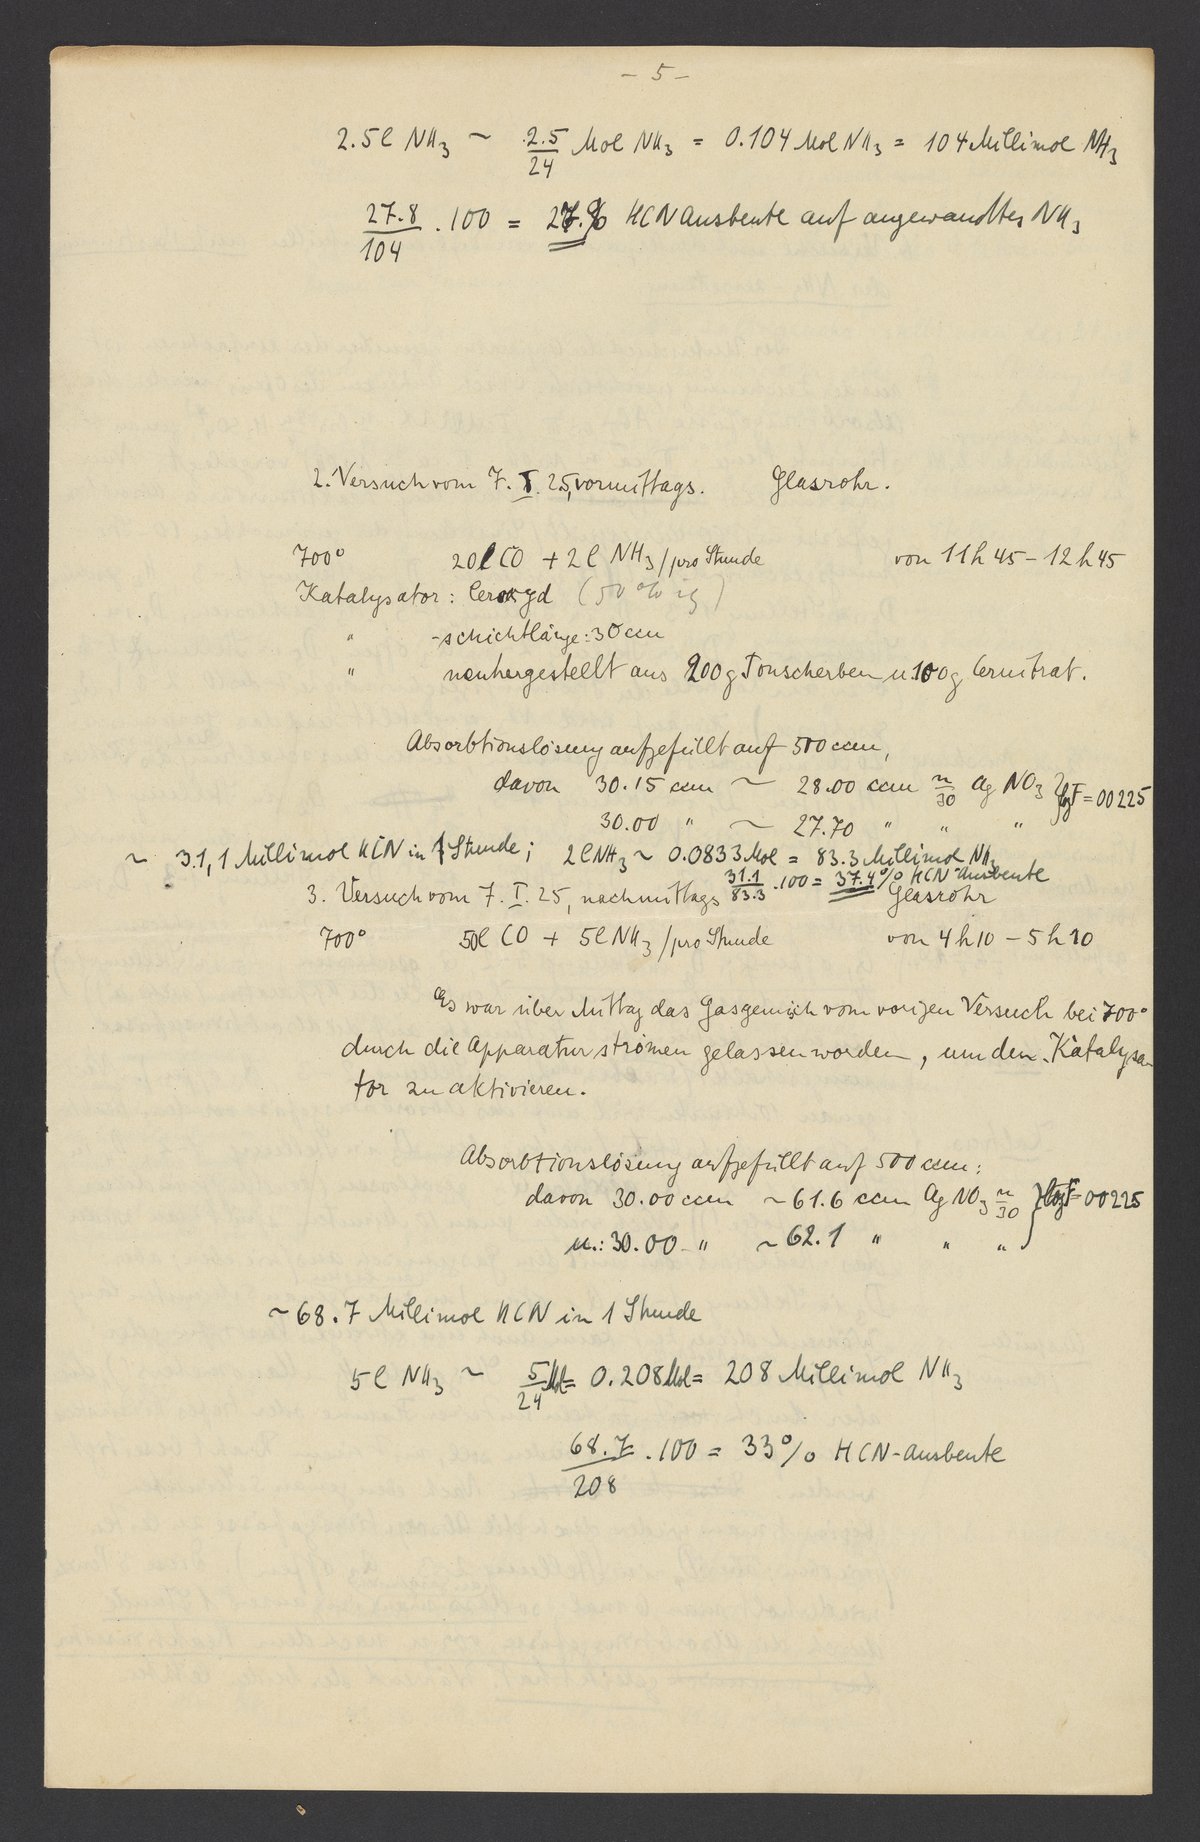 - 5 -
2.5l NH3 ~ 2.5/24 Mol NH3 = 0.104 Mol NH3 = 104 Millimol NH3
27.8/104 . 100 = HCN Ausbeute auf angewandtes NH3
2. Versuch vom 7. I. 25, vormittags. Glasrohr.
700° 20l CO + 2l NH3/pro Stunde von 11h45 - 12h45
Katalysator: Ceroxyd (50%ig)
" -schichtlänge: 30 ccm
" neuhergestellt aus 200g Tonscherben u. 100g Cernitrat.
Absorbtionslösung aufgefüllt auf 500 ccm,
davon 30.15 ccm ~ 28.00 ccm n/30 AgNO3 } lgF = 00225
30.00 " ~ 27.70 " " "
~ 31,1 Millimol HCN in 1 Stunde; 2l NH3 ~ 0.0833 Mol = 83.3 Millimol NH3
31.1/83.3 . 100 = 37.4% HCN-Ausbeute
3. Versuch vom 7. I. 25, nachmittags Glasrohr
700° 50l CO + 5l NH3/pro Stunde von 4h10 - 5h10
Es war über Mittag das Gasgemisch vom vorigen Versuch bei 700°
durch die Apparatur strömen gelassen worden, um den Katalysa-
tor zu aktivieren.
Absorbtionslösung aufgefüllt auf 500 ccm:
davon 30.00 ccm ~ 61.6 ccm AgNO3 n/30 } lgF = 00225
u.: 30.00 " ~ 62.1 " " "
~ 68.7 Millimol HCN in 1 Stunde
5l NH3 ~ 5/24 Mol = 0.208 Mol = 208 Millimol NH3
68.7/208 . 100 = 33% HCN-Ausbeute